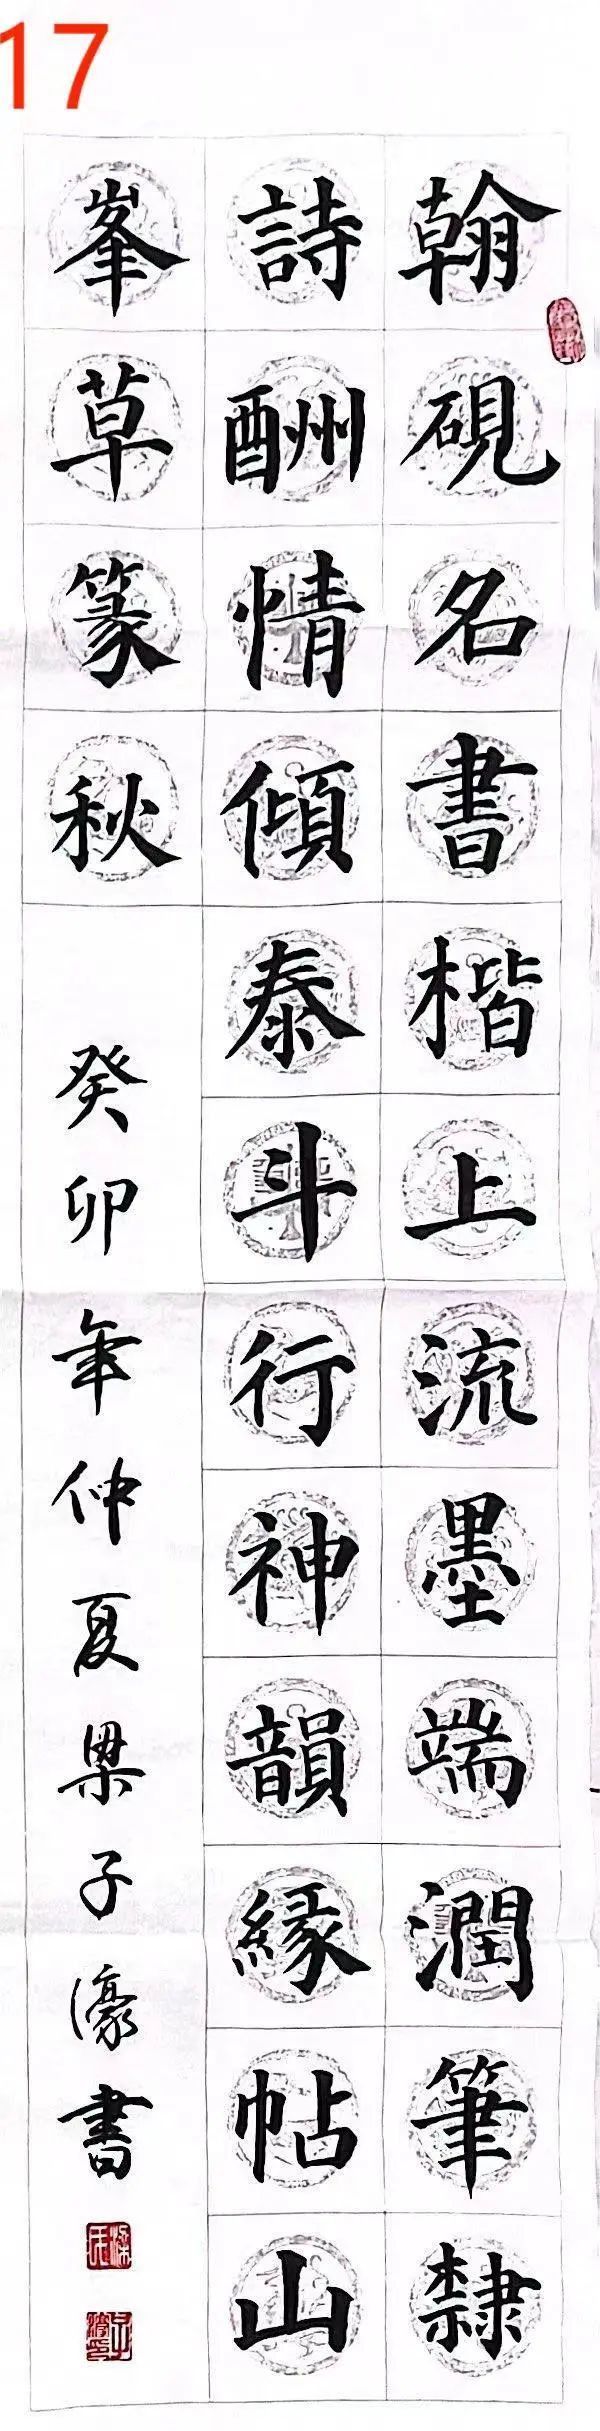 17
翰硯名書楷上流墨端潤筆隸
詩酬情傾泰斗行神韻緣帖山
峯草篆秋
癸卯年仲夏梁子濠書